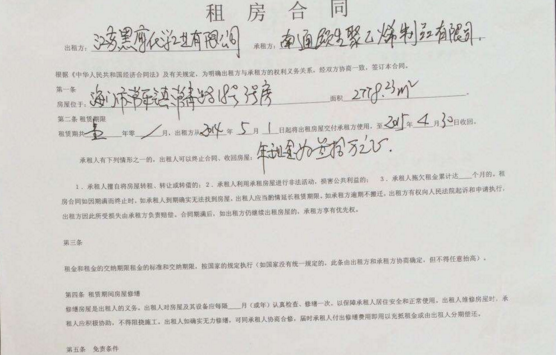 租房合同
出租方：江苏黑 化学工业有限公司 承租方：南通 聚乙烯制品有限公司.
根据《中华人民共和国经济合同法》及有关规定，为明确出租方与承租方的权利义务关系，经双方协商一致，签订本合同。
第一条
房屋位于：海门市 镇 路18号3号房 面积 2778.23m²
第二条 租赁期限
租赁期共 壹 年零 / 月，出租方从2014年5月1日起将出租房屋交付承租方使用，至2015年4月30日收回。
承租人有下列情形之一的，出租人可以终止合同，收回房屋： 年租金为 拾万元.
1、承租人擅自将房屋转租、转让或转借的；2、承租人利用承租房屋进行非法活动，损害公共利益的；3、承租人拖欠租金累计达____个月的。租
房合同如因期满而终止时，如承租人到期确实无法找到房屋，出租人应当酌情延长租赁期限。如承租方逾期不搬迁，出租方有权向人民法院起诉和申请执行，
出租方因此所受损失由承租方负责赔偿。合同期满后，如出租方仍继续出租房屋的，承租方享有优先权。
第三条
租金和租金的交纳期限租金的标准和交纳期限，按国家的规定执行（如国家没有统一规定的，此条由出租方和承租方协商确定，但不得任意抬高）。
第四条 租赁期间房屋修缮
修缮房屋是出租人的义务。出租人对房屋及其设备应每隔____月（或年）认真检查、修缮一次，以保障承租人居住安全和正常使用。出租人维修房屋时，承
租人应积极协助，不得阻挠施工。出租人如确实无力修缮，可同承租人协商合修，届时承租人付出修缮费用即用以充抵租金或由出租人分期偿还。
第五条 免责条件